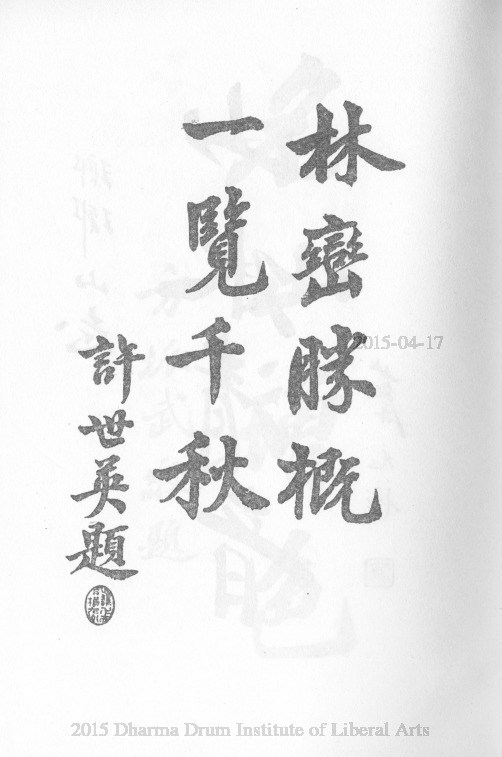 林巒勝概
一覽千秋
許世英題
2015-04-17
2015 Dharma Drum Institute of Liberal Arts